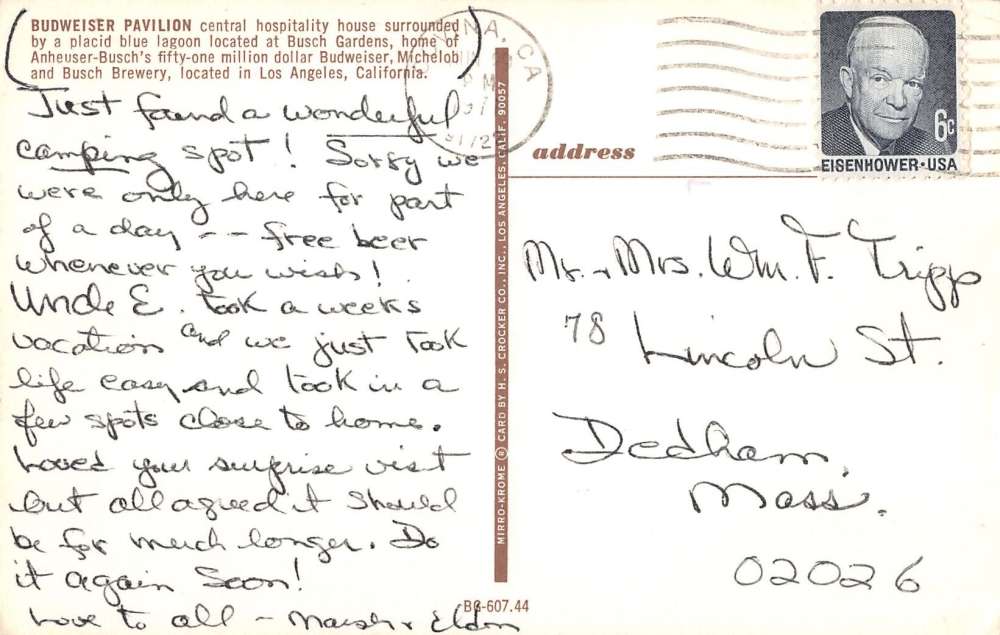 BUDWEISER PAVILION central hospitality house surrounded
by a placid blue lagoon located at Busch Gardens, home of
Anheuser-Busch's fifty-one million dollar Budweiser, Michelob
and Busch Brewery, located in Los Angeles, California.
Just found a wonderful
camping spot! Sorry we
were only here for part
of a day -- free beer
whenever you wish!
Uncle E. took a weeks
vacation and we just took
life easy and took in a
few spots close to home.
Loved your surprise visit
but all agreed it should
be for much longer. Do
it again soon!
Love to all - & Eldon
MIRRO-KROME ® CARD BY H. S. CROCKER CO., INC., LOS ANGELES, CALIF. 90057
BG-607.44
NA, CA
PM
address
6c
EISENHOWER·USA
Mr. & Mrs. Wm. F. Tripp
78 Lincoln St.
Dedham,
Mass.
02026